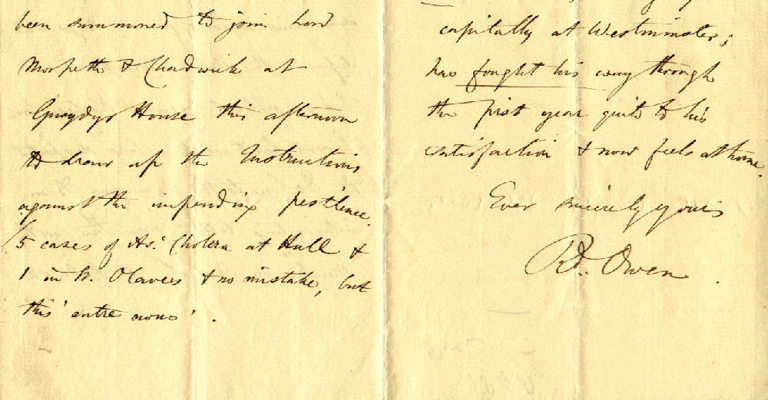 been summoned to join Lord
Morpeth & Chadwick at
Gwydyr House this afternoon
to draw up the Instructions
against the impending pestilence.
5 cases of As. Cholera at Hull &
1 in St. Olaves & no mistake, but
this 'entre nous'.
capitally at Westminster;
has fought his way through
the first year quite to his
satisfaction & now feels at home.
Ever sincerely yours
Rd. Owen.